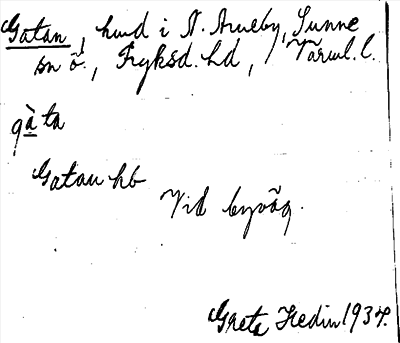 Gatan, hmd i N. Amneby, Sunne
sn ö., Fryksd. hd, Värml. l.
gà̲ta
Gatan hb
Vid byväg.
Greta Hedin 1934.